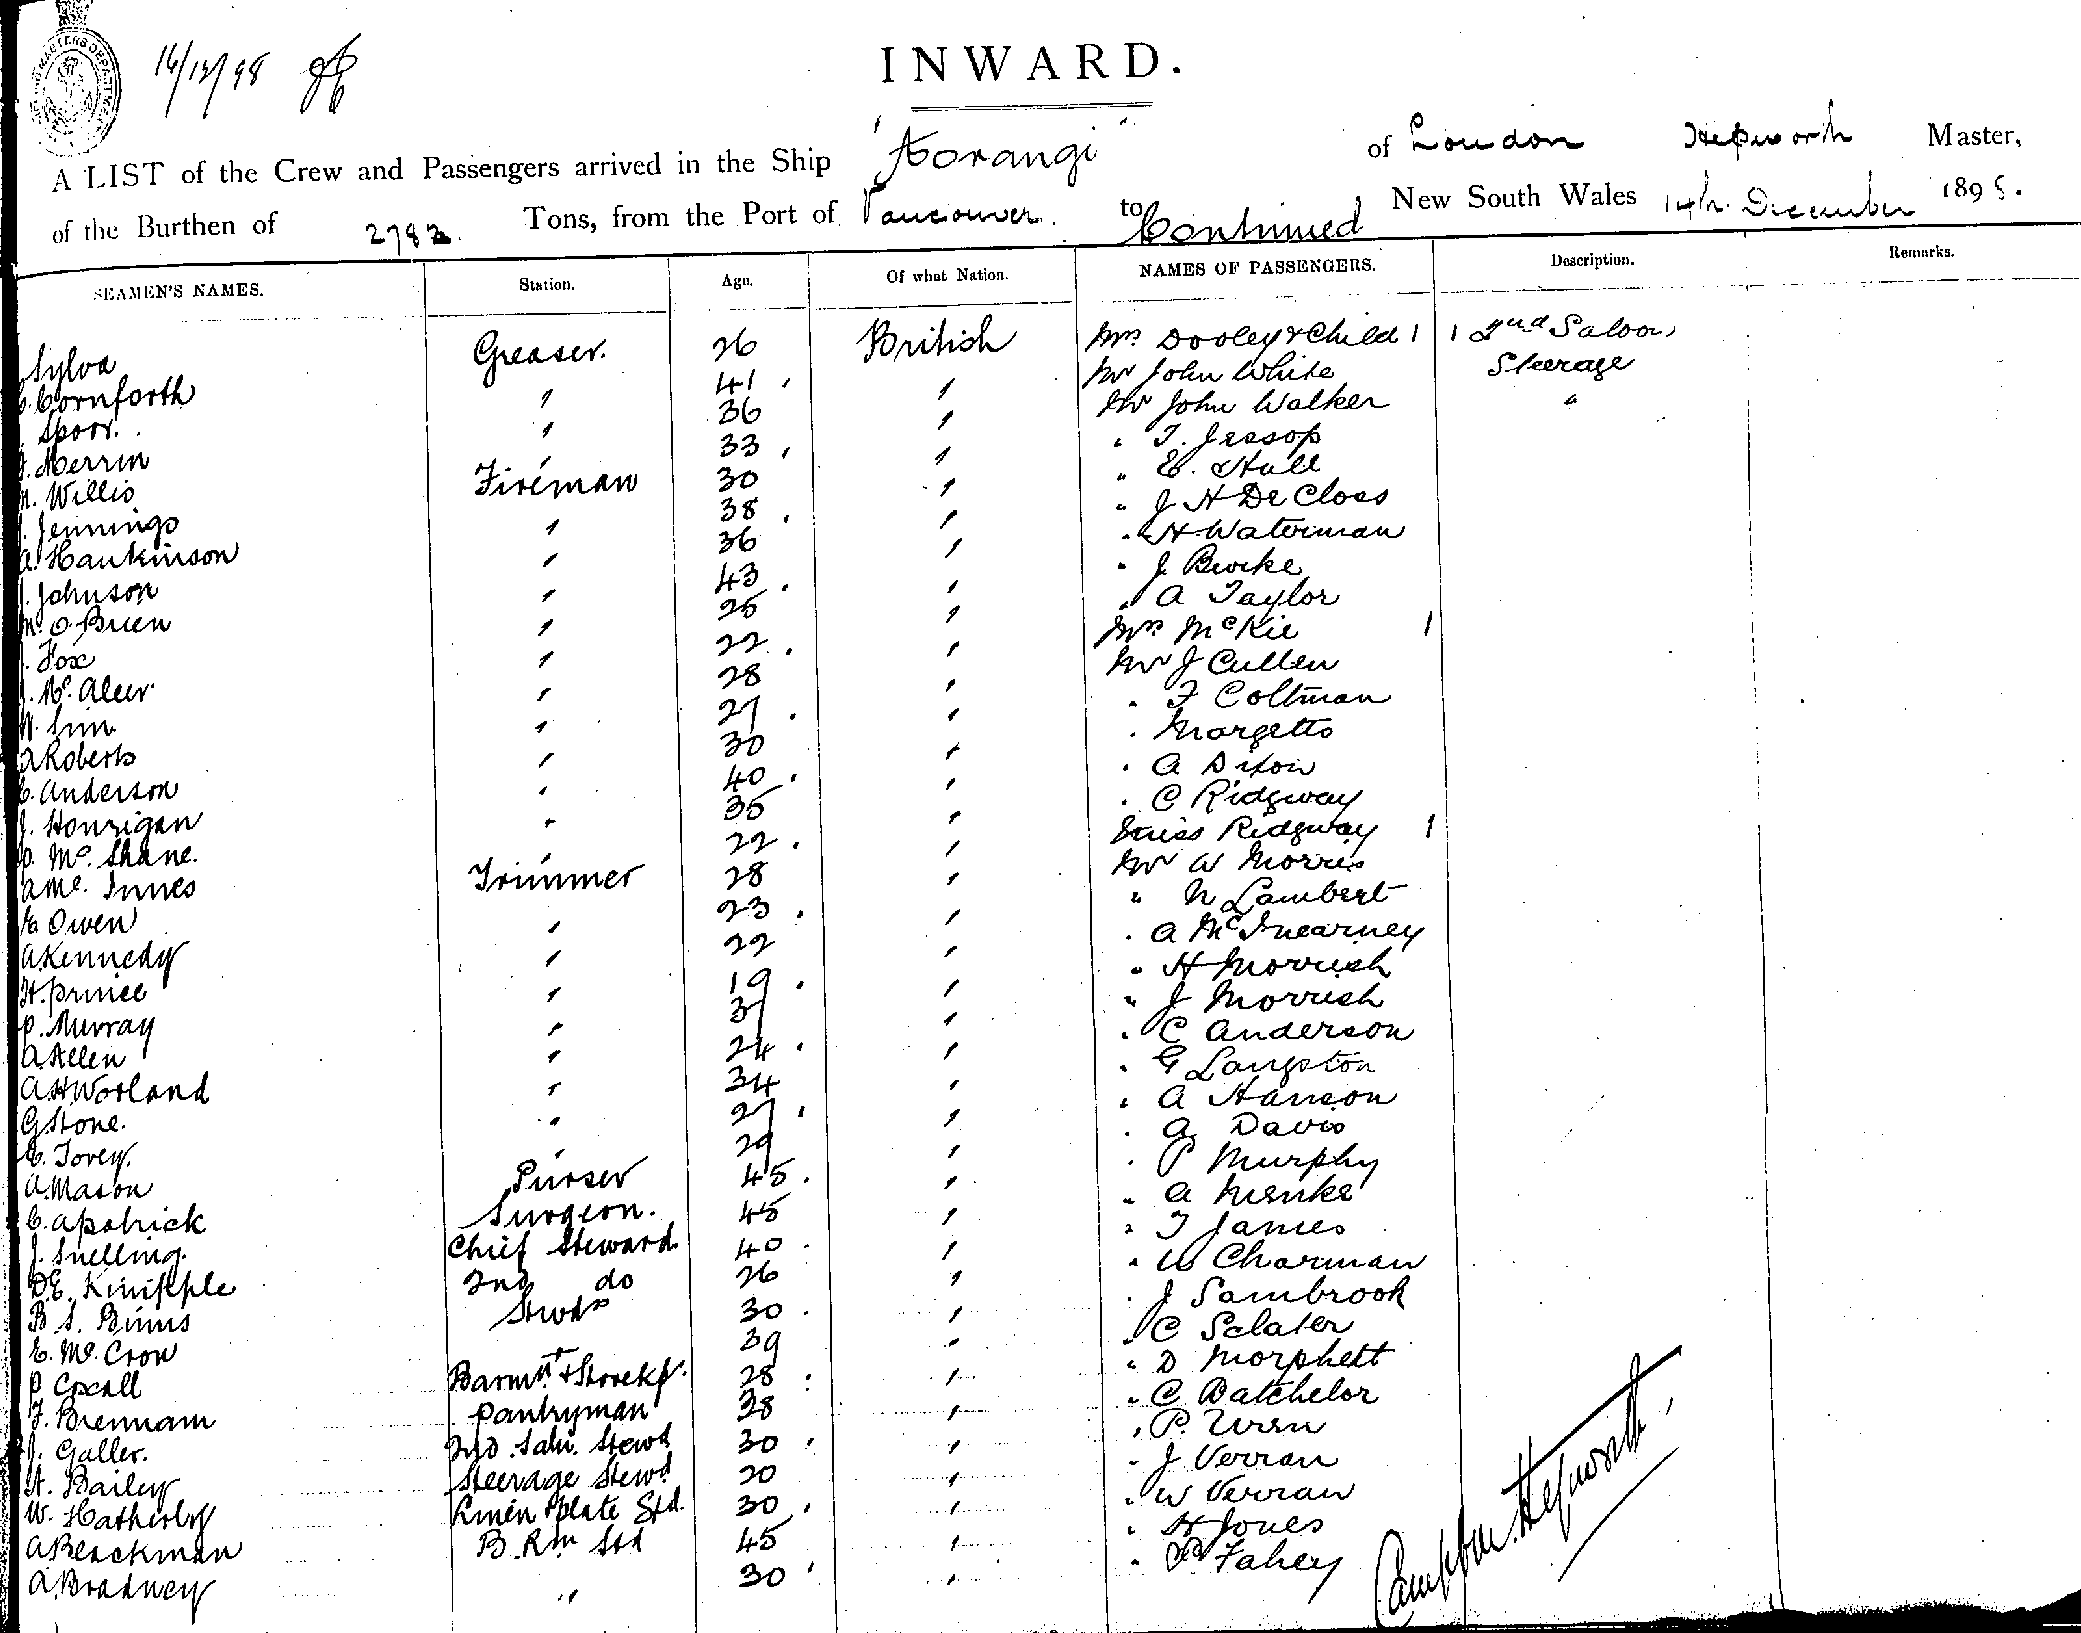 16/12/98
INWARD.
A LIST of the Crew and Passengers arrived in the Ship "Aorangi" of London Hepworth Master,
of the Burthen of 2782 Tons, from the Port of Vancouver to Continued New South Wales 14th December 1898.
SEAMEN'S NAMES. Station. Age. Of what Nation. NAMES OF PASSENGERS. Description. Remarks.
Sylva Greaser. 26 British Mrs Dooley & Child 1 1 2nd Saloon
Cornforth " 41 " Mr John White Steerage
Spoor. " 36 " Mr John Walker "
Merrin " 33 " " T. Jessop
Willis Fireman 30 " " E. Hall
Jennings " 38 " " J H De Closs
A. Hankinson " 36 " " H Waterman
J. Johnson " 43 " " J Burke
O'Brien " 25 " " A Taylor
J. Fox " 22 " Mrs McKie 1
J. McAleer " 28 " Mr J Cullen
Sim " 27 " " F Coltman
A Roberts " 30 " " Margetts
C. Anderson " 40 " " A Dixon
J. Hourigan " 35 " " C Ridgway
P. McShane. " 22 " Miss Ridgway 1
A Mc. Innes Trimmer 28 " Mr W Morris
Owen " 23 " " N Lambert
A Kennedy " 22 " " A McInearney
H. Prince " 19 " " H Morrish
P. Murray " 37 " " J Morrish
A Allen " 24 " " C Anderson
A H Worland " 34 " " G Langston
G Stone. " 27 " " A Hanson
C. Tovey. " 29 " " A Davis
A. Mason Purser 45 " " P Murphy
C. Apatrick Surgeon. 45 " " A Menke
J. Snelling. Chief Steward 40 " " T James
D.E. Kinipple 2nd do 26 " " W Charman
B S. Binns Stwds 30 " " J Sambrook
E. Mc. Crow 39 " " C Sclater
P Coxall Barmn & Storekp. 28 " " D Morphett
F. Brennam Pantryman 38 " " C Batchelor
J. Galler. 2nd Saln. Stewd 30 " " P. Wren
H. Bailey Steerage Stewd 20 " " J Verran
W. Hatherly Linen & plate Std. 30 " " W Verran
A Blackman B. Rm Std 45 " " H Jones
A Bradney " 30 " " P Fahey
Campbell Hepworth